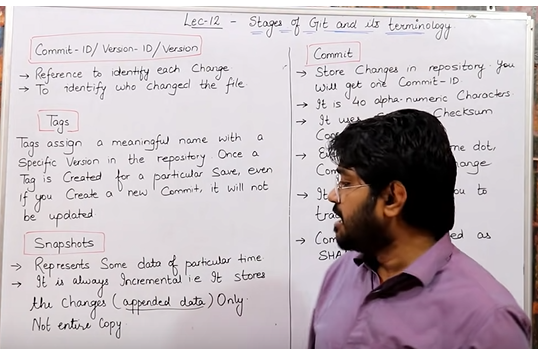 Lec-12 - Stages of Git and its terminology
Commit-ID/Version-ID/Version
→ Reference to identify each Change
→ To identify who changed the file
Tags
Tags assign a meaningful name with a
Specific Version in the repository Once a
Tag is Created for a particular Save, even
if you Create a new Commit, it will not
be updated
Snapshots
→ Represents Some data of particular time
→ It is always Incremental i.e It stores
the Changes (appended data) Only.
Not entire Copy
Commit
→ Store Changes in repository. You
will get one Commit-ID.
→ It is 40 alpha-numeric Characters
→ It uses Checksum
→ dot,
→ It you to
→ as
SHA